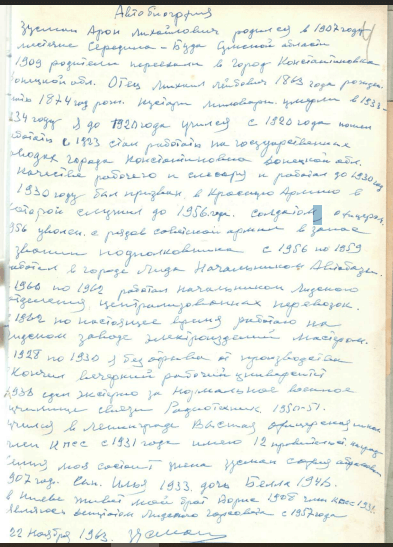 Автобиография
Зусман Арон Михайлович родился в 1907 году
местечке Середина-Буда Сумской области
1909 родители переехали в город Константиновка
Донецкой обл. Отец Михаил 1869 года рожден.
мать 1874 год рож. умерли в 1933-
34 году Я до 1920 года учился с 1920 года пошел
работать с 1923 стал работать на государственных
заводах города Константиновка Донецкой обл.
качестве рабочего и слесаря и работал до 1930 году
1930 году был призван в Красную Армию в
которой служил до 1956 год. солдатом офицером
956 уволен с рядов советской армии в запас
звании подполковника с 1956 по 1959
работал в городе Лида Начальником Автобазы.
1960 по 1962 работал начальником Лидского
отделения централизованных перевозок.
1962 по настоящее время работаю на
Лидском заводе электроизделий Мастером.
1928 по 1930 я без отрыва от производства
кончил вечерний рабочий университет
1938 сдал экстерно за нормальное военное
училище связи Радиотехник. 1950-51.
учился в Ленинграде Высшая офицерская школа
член КПСС с 1931 года имею 12 правительст. наград
Семья моя состоит жена Зусман Софья
907 год. сын Илья 1933. дочь Белла 1946.
в Киеве живет мой брат Борис 1908 член КПСС 1931.
Являюсь Лидского горсовета с 1957 года
22 Ноября 1963. Зусман